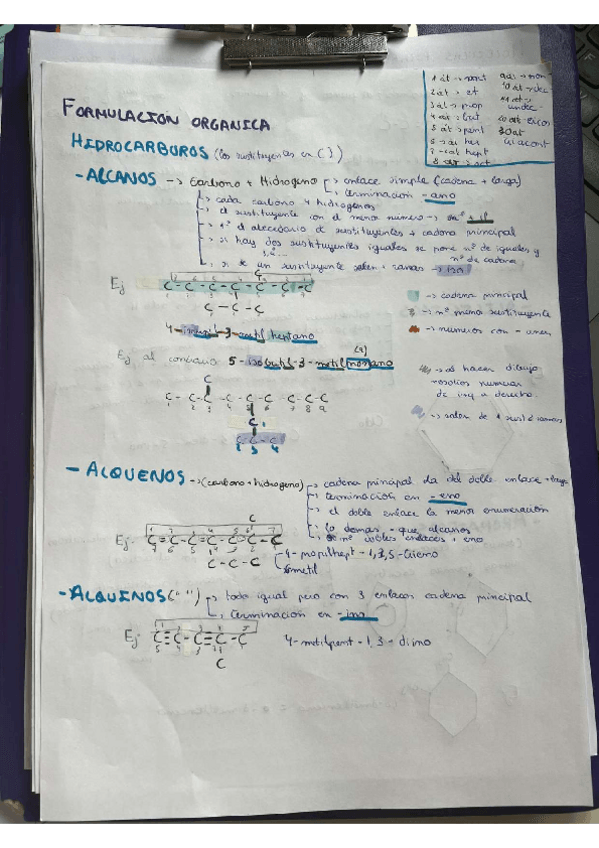 FORMULACION ORGANICA
1 át → met
2 át → et
3 át → prop
4 at → but
5 át → pent
6 → át hex
7 - át hept
8 at → oct
10 át → dec
11 at →
undec
20 at → eicos
30 at
HIDROCARBUROS (los sustituyentes en ( ))
- ALCANOS → Carbono + Hidrogeno enlace simple (cadena + larga)
terminacion - ano
cada carbono 4 hidrogenos
el sustituyente con el menor numero →
nº alecedario de sustituyentes + cadena principal
si hay dos sustituyentes iguales se pone nº de iguales y
nº de cadena
si de un sustituyente salen + ramas → iso
C
Ej C-C-C-C-C-C-C
C-C-C
4- -3-metil heptano
→ cadena principal
→ nº menor sustituyente
→ numeros con - unen
Ej al contrario 5-isobutil-3-metil(non)ano
→ al hacer dibujo
nosotros numerar
de izq a derecha
C
C-C-C-C-C-C-C-C-C
1 2 3 4 5 6 7 8 9
C
C-C-C
- ALQUENOS → (carbono + hidrogeno) cadena principal la del doble enlace + larga
terminacion en - eno
el doble enlace la menor enumeración
lo demas - que alcanos
nº dobles enlaces + eno
C
Ej: C=C-C=C-C=C-C
C-C-C
4-propilhept-1,3,5-trieno
6metil
- ALQUINOS (" ") → todo igual pero con 3 enlaces cadena principal
terminacion en - ino
Ej: C≡C-C≡C-C
C
4-metilpent-1,3-diino